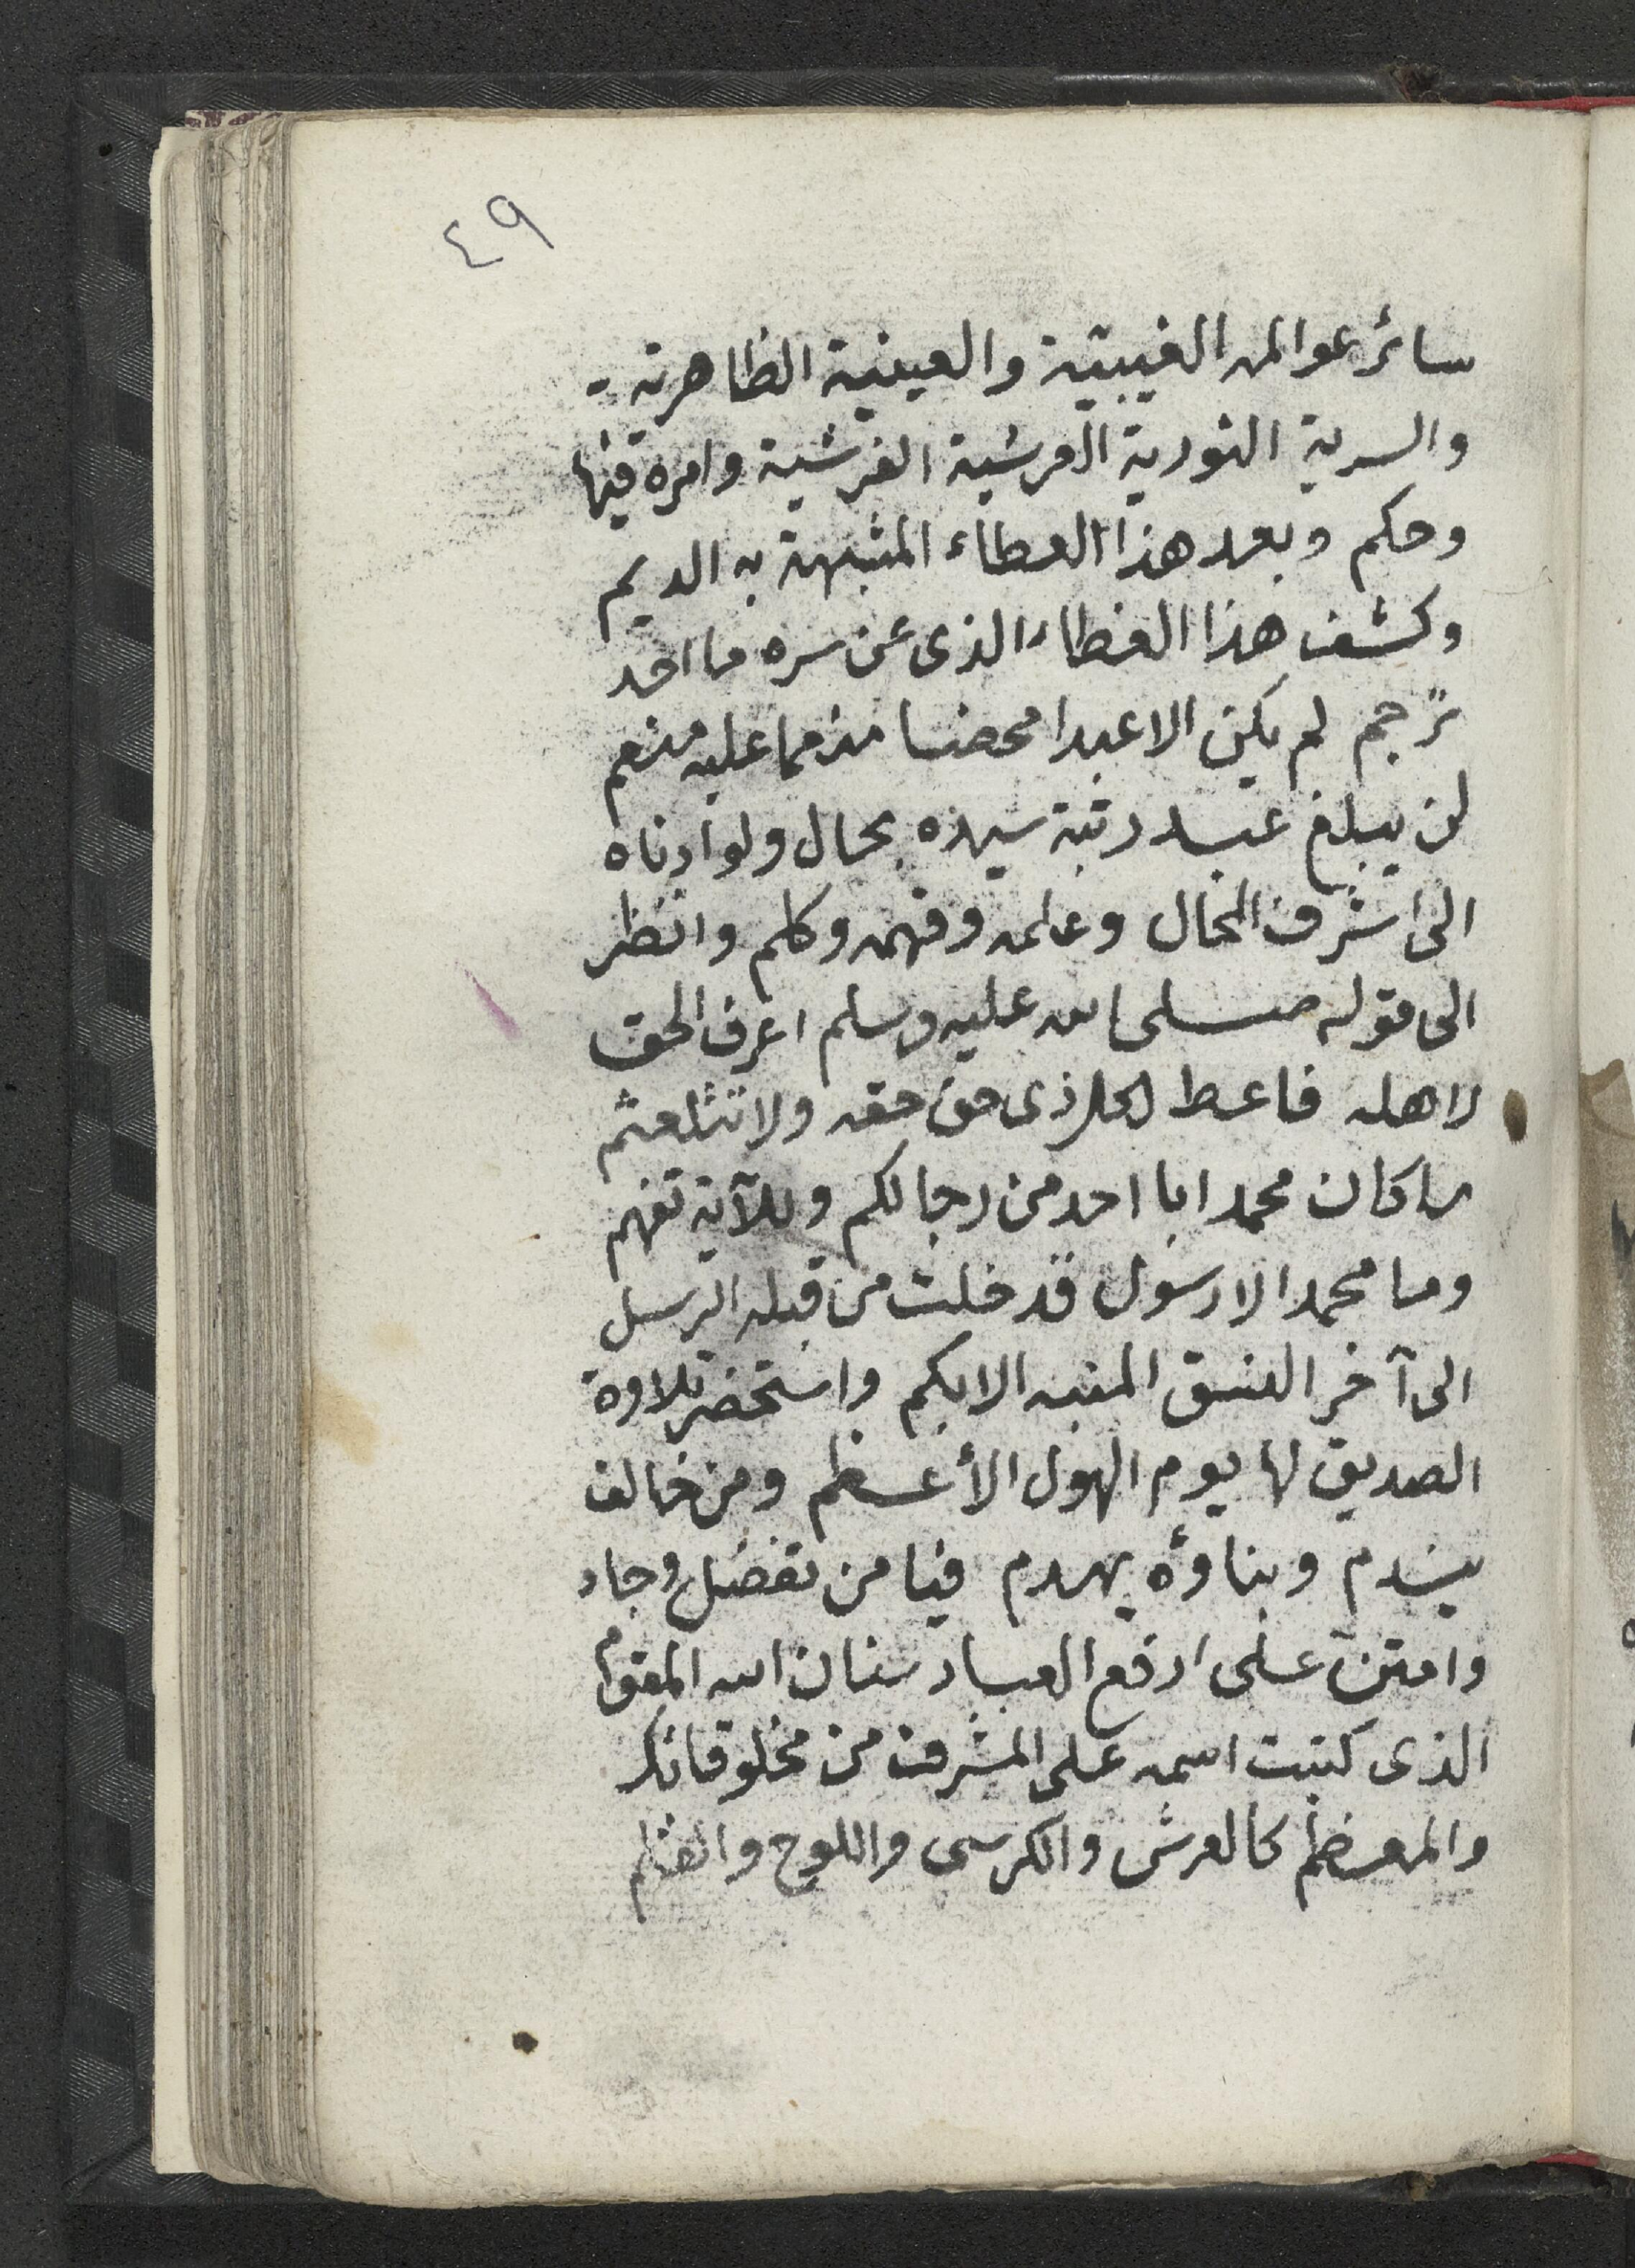 ٤٩
سائر عوالمه الغيبية والعينية الظاهرية
والسرية النورية العرشية الفرشية وامره فيها
وحكم وبعد هذا العطاء المشبهة به الديم
وكشف هذا الغطاء الذى عن سره ما احد
ترجم لم يكن الا عبدا محضا منعما عليه منعم
لن يبلغ عبد رتبة سيده بحال ولو ادناه
الى اشرف المحال وعلمه وفهمه وكلم وانظر
الى قوله صلى الله عليه وسلم اعرف الحق
لاهله فاعط لكل ذى حق حقه ولا تتلعثم
ما كان محمد ابا احد من رجالكم وللآية تفهم
وما محمد الا رسول قد خلت من قبله الرسل
الى آخر النسق المنبه الابكم واستحضر تلاوة
الصديق لها يوم الهول الأعظم ومن خالف
يندم وبناؤه يهدم فيا من تفضل وجاد
وامتن على ارفع العباد سنان الله المقوم
الذى كتبت اسمه على المشرف من مخلوقاتك
والمعظم كالعرش والكرسى واللوح والقلم